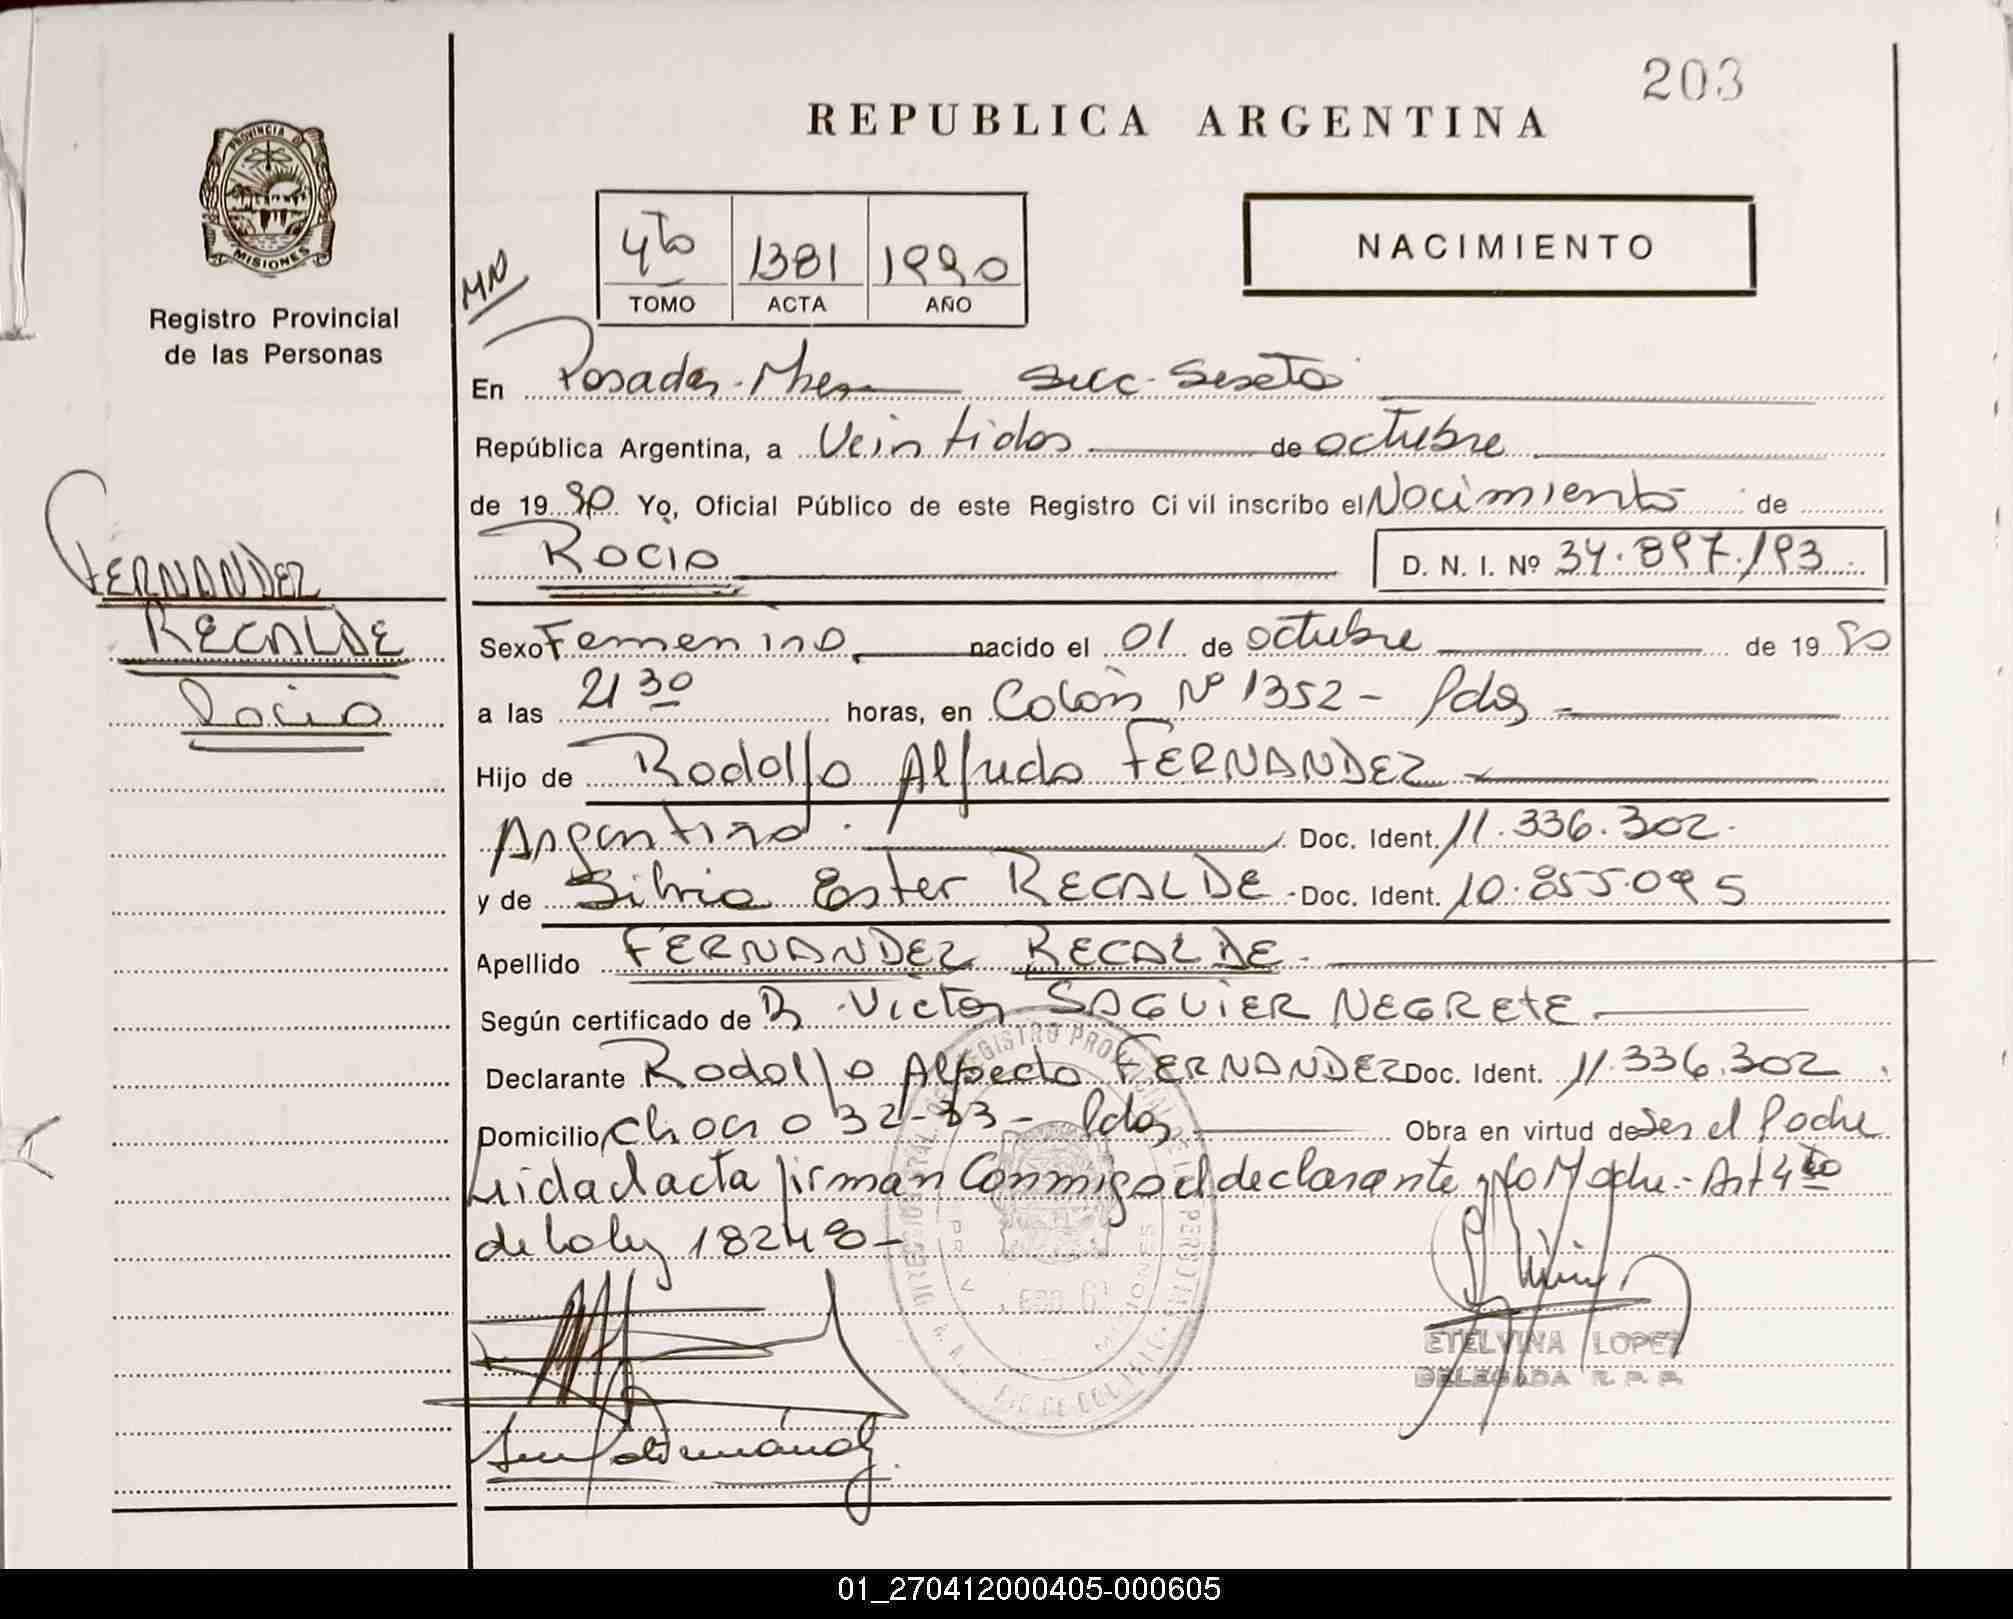 203
REPUBLICA ARGENTINA
PROVINCIA D
MISIONES
Registro Provincial
de las Personas
4to 1381 1990
TOMO ACTA AÑO
NACIMIENTO
En Posadas - Mnes Secc. Sexta
República Argentina, a Veintidos de octubre
de 19 90 Yo, Oficial Público de este Registro Ci vil inscribo el Nacimiento de
ROCIO D. N. I. Nº 34.897.193
FERNANDEZ
RECALDE
Rocio
Sexo Femenino nacido el 01 de octubre de 19 90
a las 21 30 horas, en Colón Nº 1352 - Pdas
Hijo de Rodolfo Alfredo FERNANDEZ
Argentino. Doc. Ident. 11.336.302.
y de Silvia Ester RECALDE - Doc. Ident. 10.855.095
Apellido FERNANDEZ RECALDE
Según certificado de Dr Victor SAGUIER NEGRETE
Declarante Rodolfo Alfredo FERNANDEZ Doc. Ident. 11.336.302
Domicilio Chaco 32-33 - Pdas Obra en virtud de Ser el Padre
Leida el acta firman Conmigo el declarante y la Madre - Art 4to
de la ley 18248 -
ETELVINA LOPEZ
DELEGADA R. P. P.
01_270412000405-000605